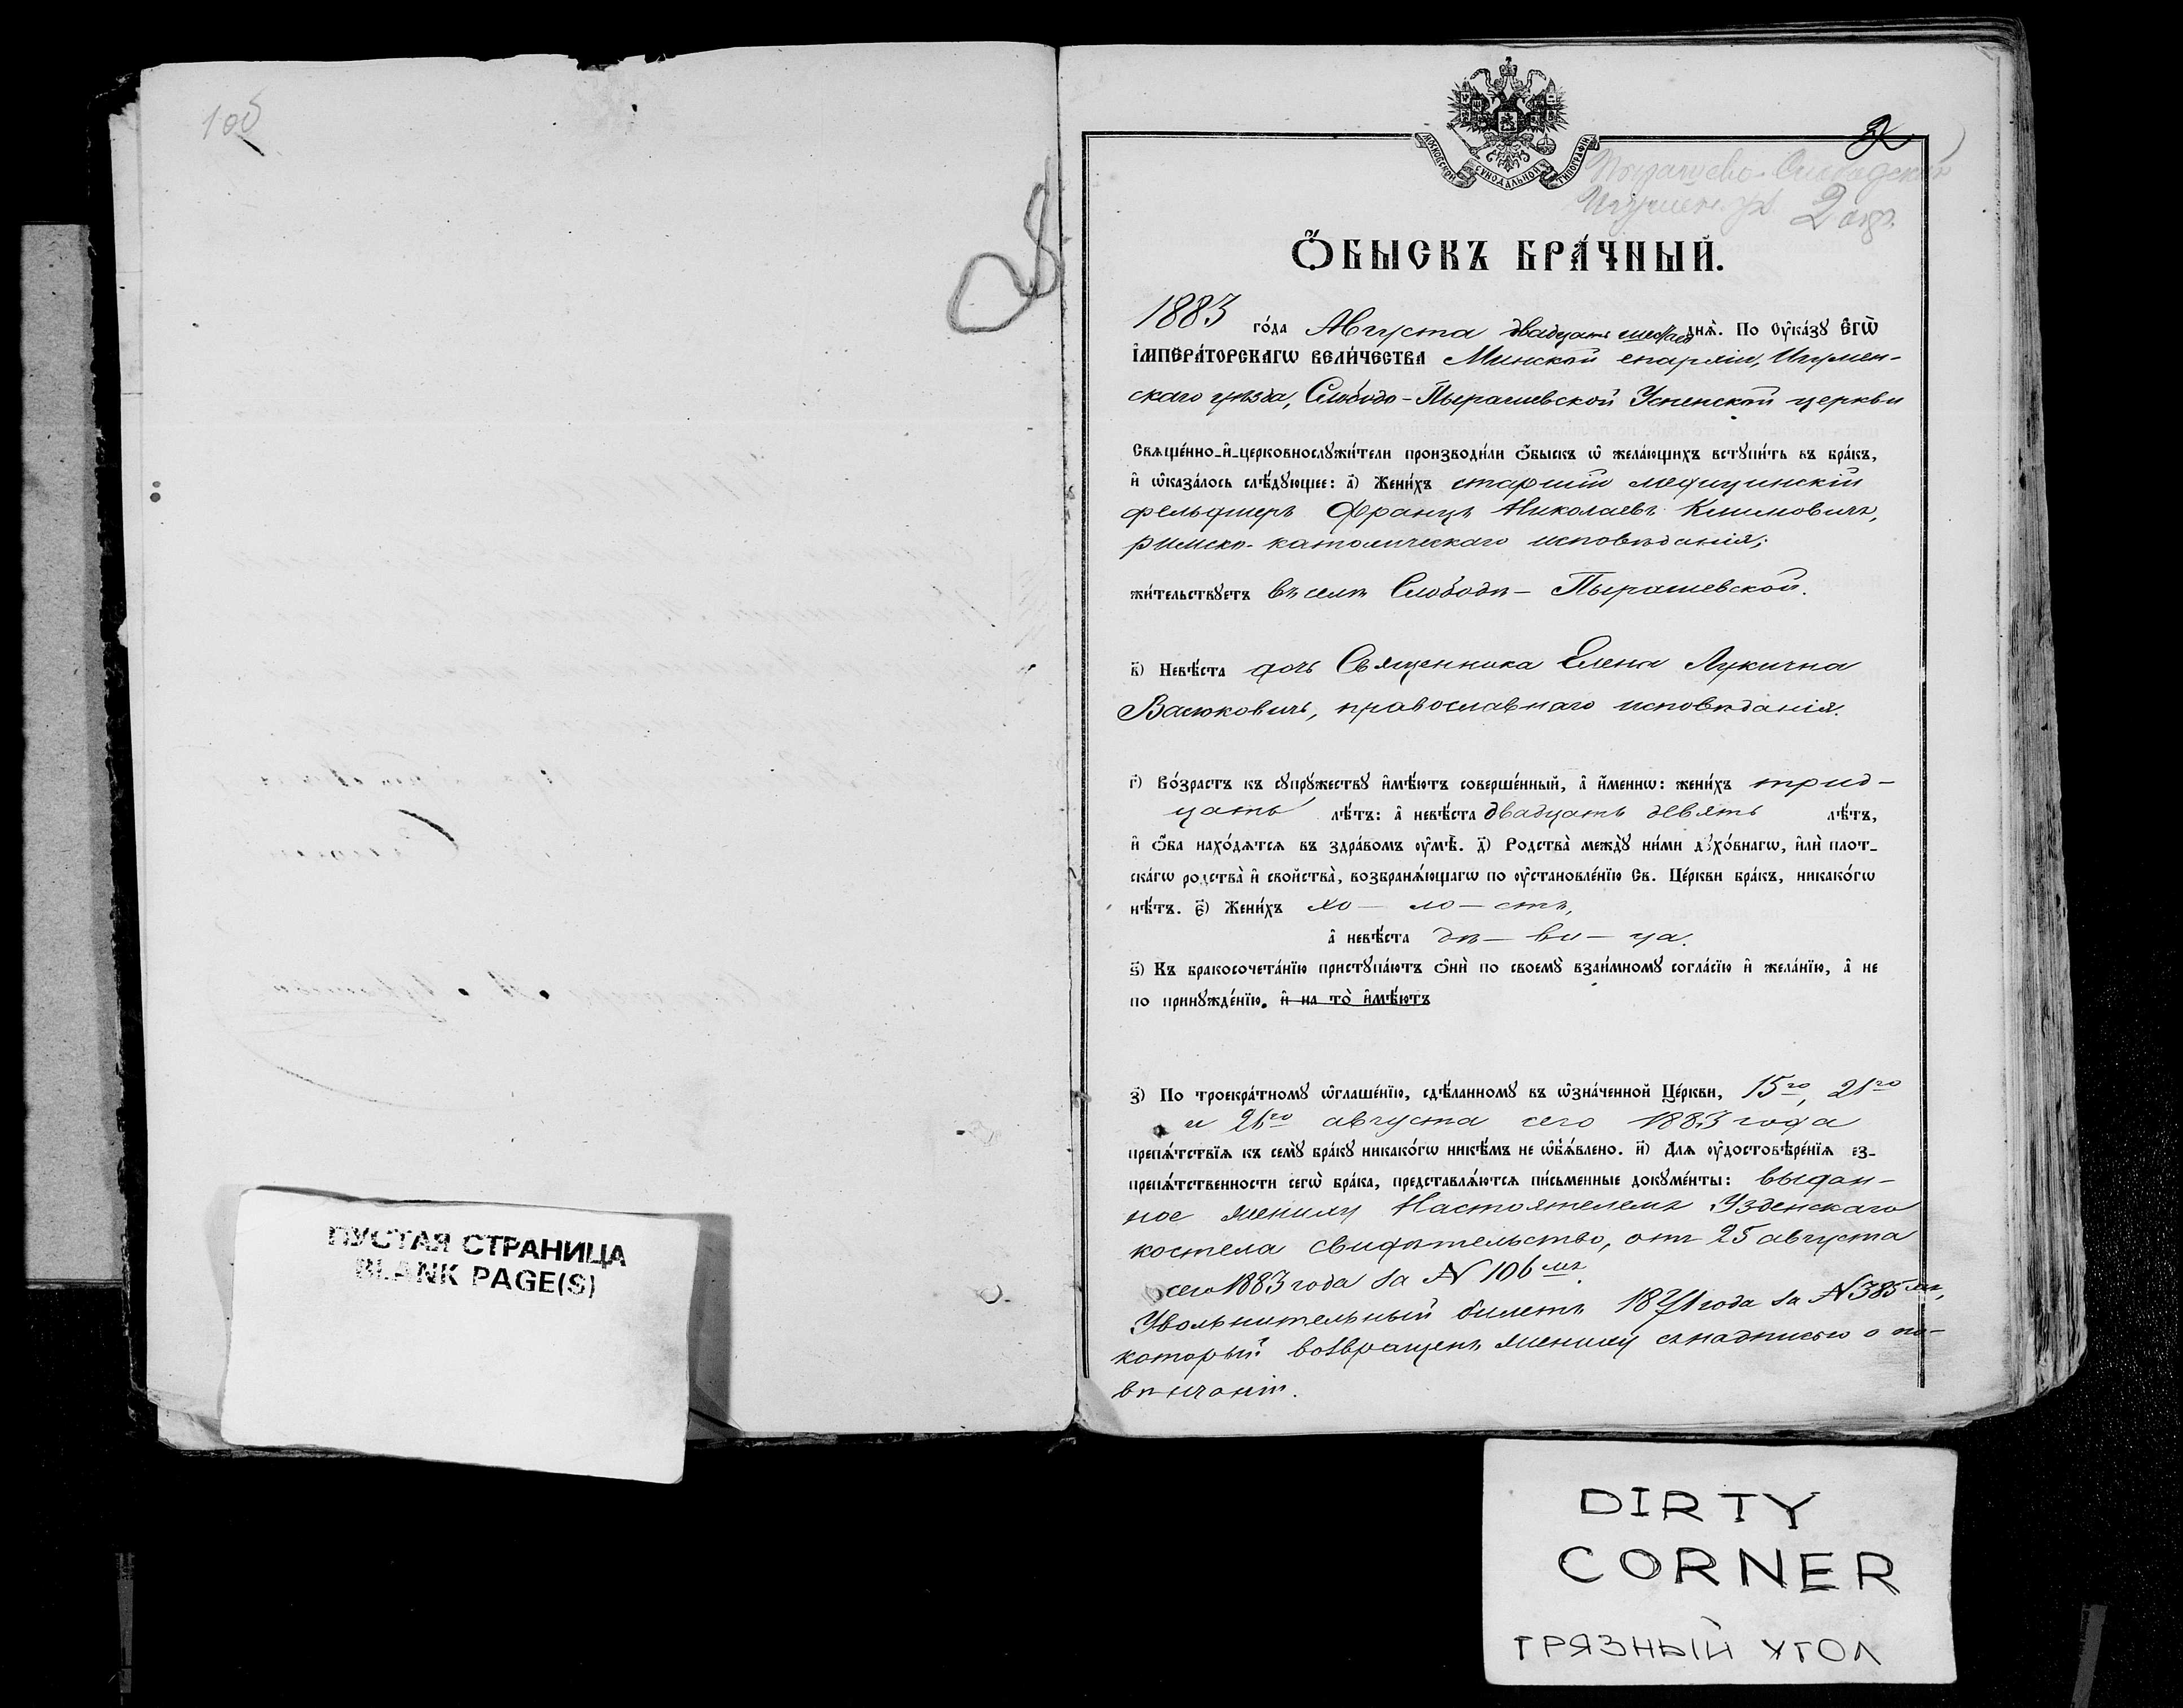 100
МОСКОВСКОЙ СѴНОДАЛЬНОЙ ТИПОГРАФІИ
2
Игумен. у.
2 окр.
Ѻ҆БЫСКЪ БРА́ЧНЫЙ.
1883 го́да Августа двадцать шестаго днѧ̀. По ᲂу҆ка́зꙋ Є҆гѡ̀
І҆МПЕРА́ТОРСКАГѠ ВЕЛИ́ЧЕСТВА Минской епархіи, Игумен-
скаго уѣзда, Слободо-Пырашевской Успенской церкви
Свѧще́нно-и҆-церковнослꙋжи́тели производи́ли ѻ҆́быскъ ѡ҆ жела́ющихъ встꙋпи́ть въ бра́къ,
и҆ ѡ҆каза́лось слѣ́дꙋющее: а҃) Жени́хъ старшій медицинскій
фельдшеръ Францъ Николаевъ Климовичъ,
римско-католическаго исповѣданія;
жи́тельствꙋетъ въ селѣ Слободѣ-Пырашевской.
в҃) Невѣ́ста дочь Священника Елена Лукична
Васюковичъ, православнаго исповѣданія.
г҃) Во́зрастъ къ сꙋпрꙋ́жествꙋ и҆мѣ́ютъ соверше́нный, а҆ и҆́меннѡ: жени́хъ трид-
цать лѣ́тъ: а҆ невѣ́ста двадцать девять лѣ́тъ,
и҆ ѻ҆́ба нахо́дѧтсѧ въ здра́вомъ ᲂу҆мѣ̀. д҃) Родства̀ междꙋ̀ ни́ми дꙋхо́внагѡ, и҆лѝ плот-
ска́гѡ родства̀ и҆ свойства̀, возбранѧ́ющагѡ по ᲂу҆становле́нїю Св. Це́ркви бра́къ, никако́гѡ
нѣ́тъ. є҃) Жени́хъ хо-ло-стъ,
а҆ невѣ́ста дѣ-ви-ца.
ѕ҃) Къ бракосочета́нїю пристꙋпа́ютъ ѻ҆нѝ по своемꙋ̀ взаи́мномꙋ согла́сїю и҆ жела́нїю, а҆ не
по принꙋжде́нїю. и҆ на то̀ и҆мѣ́ютъ
з҃) По троекра́тномꙋ ѡ҆глаше́нїю, сдѣ́ланномꙋ въ ѡ҆зна́ченной Це́ркви, 15го, 21го
и 26го августа сего 1883 года
препѧ́тствїѧ къ семꙋ̀ бра́кꙋ никако́гѡ никѣ́мъ не ѡ҆б̾ѧ́влено. и҃) Для ᲂу҆достовѣре́нїѧ ез-
препѧ́тственности сегѡ̀ бра́ка, представлѧ́ютсѧ пи́сьменные докꙋме́нты: выдан-
ное жениху Настоятелемъ Узденскаго
костела свидѣтельство, отъ 25 августа
сего 1883 года за N 106мъ.
Увольнительный билетъ года за N 385мъ,
который возвращенъ жениху съ надписью о по-
вѣнчаніи.
ПУСТАЯ СТРАНИЦА
BLANK PAGE(S)
DIRTY
CORNER
ГРЯЗНЫЙ УГОЛ